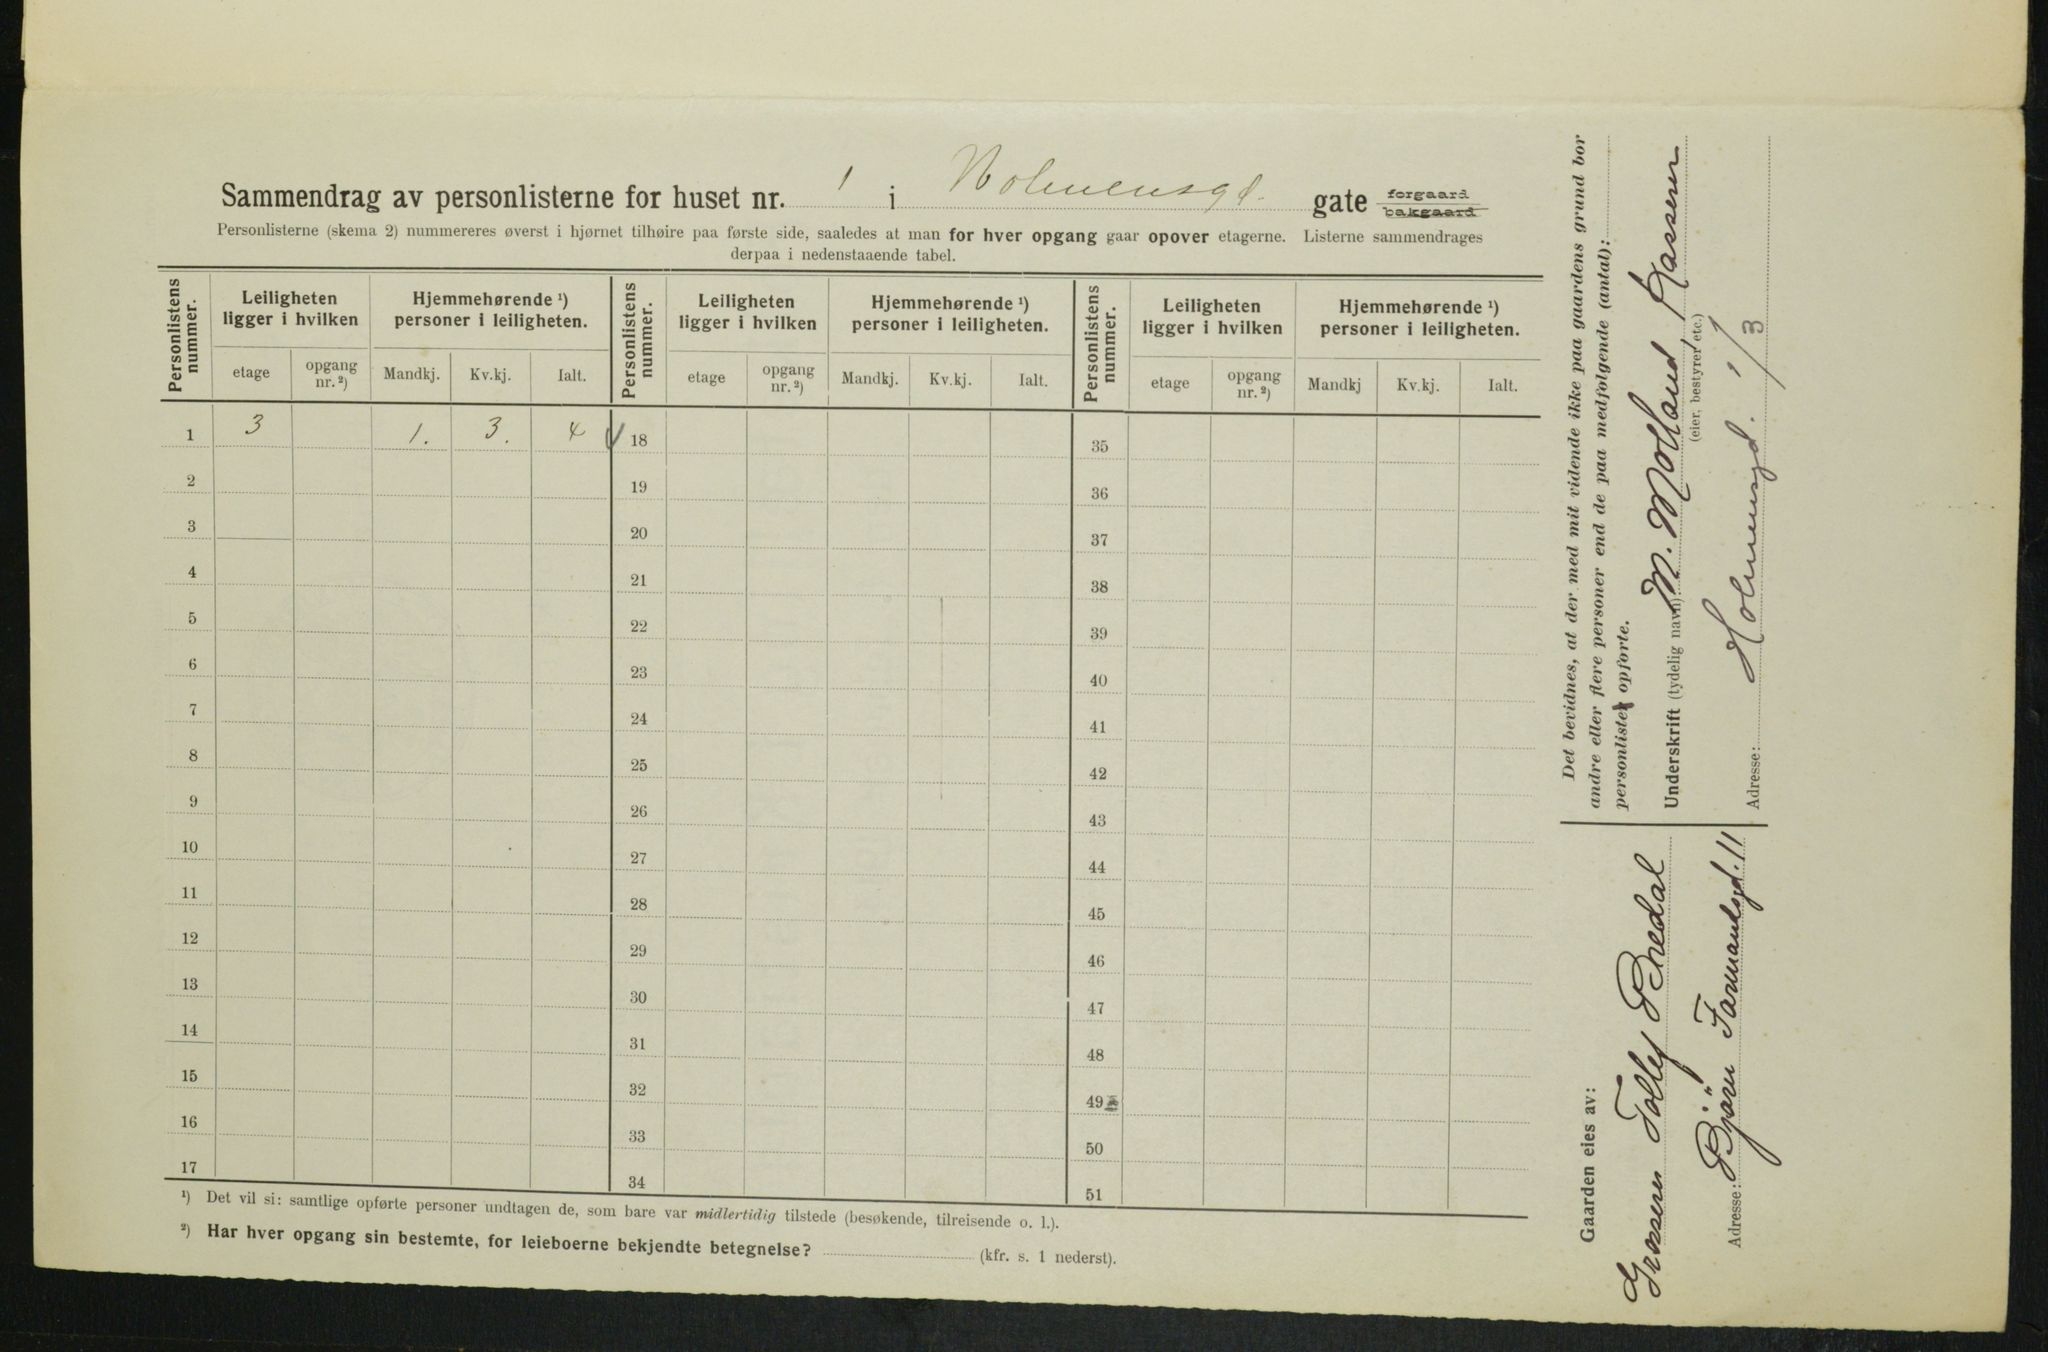 Sammendrag av personlisterne for huset nr. 1 i Holmensgd. gate forgaard bakgaard
Personlisterne (skema 2) nummereres øverst i hjørnet tilhøire paa første side, saaledes at man for hver opgang gaar opover etagerne. Listerne sammendrages
derpaa i nedenstaaende tabel.
Personlistens nummer. Leiligheten ligger i hvilken Hjemmehørende ¹) personer i leiligheten. Personlistens nummer. Leiligheten ligger i hvilken Hjemmehørende ¹) personer i leiligheten. Personlistens nummer. Leiligheten ligger i hvilken Hjemmehørende ¹) personer i leiligheten.
etage opgang nr. ²) Mandkj. Kv.kj. Ialt. etage opgang nr. ²) Mandkj. Kv.kj. Ialt. etage opgang nr. ²) Mandkj Kv.kj. Ialt.
1 3 1. 3. 4 18 35
2 19 36
3 20 37
4 21 38
5 22 39
6 23 40
7 24 41
8 25 42
9 26 43
10 27 44
11 28 45
12 29 46
13 30 47
14 31 48
15 32 49
16 33 50
17 34 51
¹) Det vil si: samtlige opførte personer undtagen de, som bare var midlertidig tilstede (besøkende, tilreisende o. l.).
²) Har hver opgang sin bestemte, for leieboerne bekjendte betegnelse? (kfr. s. 1 nederst).
Det bevidnes, at der med mit vidende ikke paa gaardens grund bor
andre eller flere personer end de paa medfølgende (antal):
personlister opførte.
Underskrift (tydelig navn) M. Molland
(eier, bestyrer etc.)
Adresse: Holmensgd. 1/3
Gaarden eies av:
Grosserer Bredal
Adresse: Bjørn Farmandsgd. 11